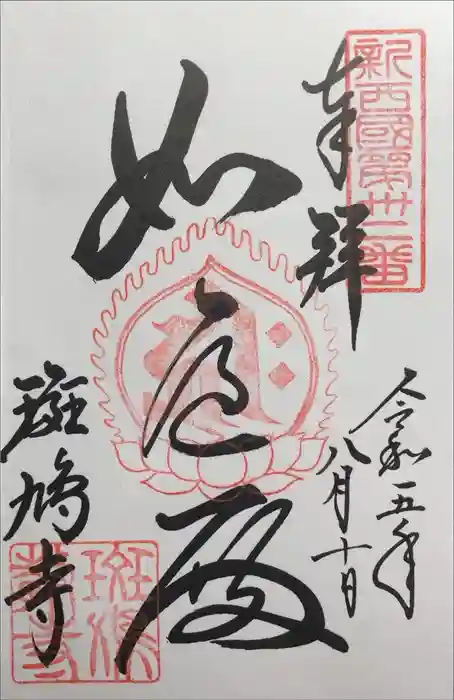 新西國第卅二番
奉拜
令和五年
八月十日
如意殿
斑鳩寺
斑鳩